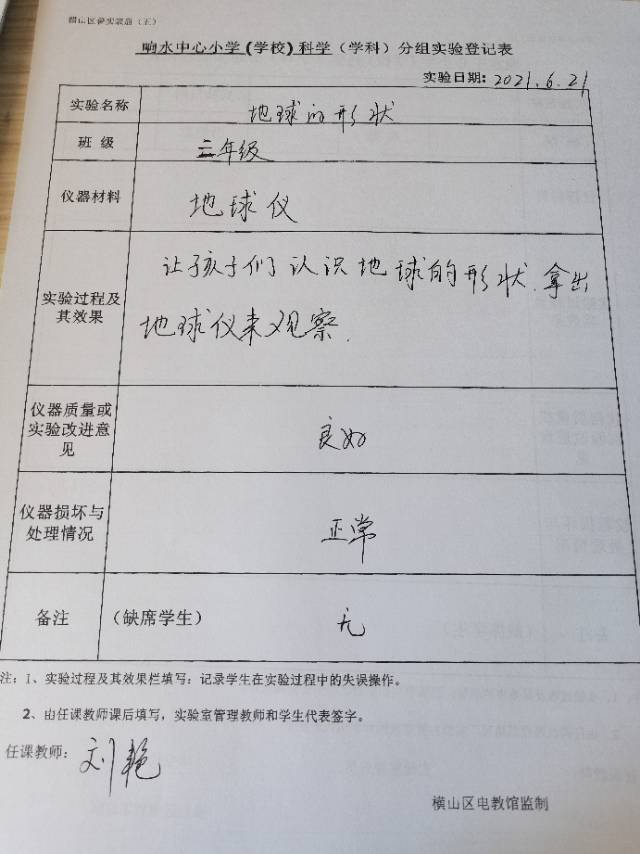 横山区教实表（五）
响水中心小学(学校)科学（学科）分组实验登记表
实验日期：2021.6.21
实验名称 地球的形状
班 级 三年级
仪器材料 地球仪
实验过程及其效果 让孩子们认识地球的形状.拿出
地球仪来观察.
仪器质量或
实验改进意
见 良好
仪器损坏与
处理情况 正常
备注 (缺席学生) 无
注：1、实验过程及其效果栏填写：记录学生在实验过程中的失误操作。
2、由任课教师课后填写，实验室管理教师和学生代表签字。
任课教师：刘艳
横山区电教馆监制